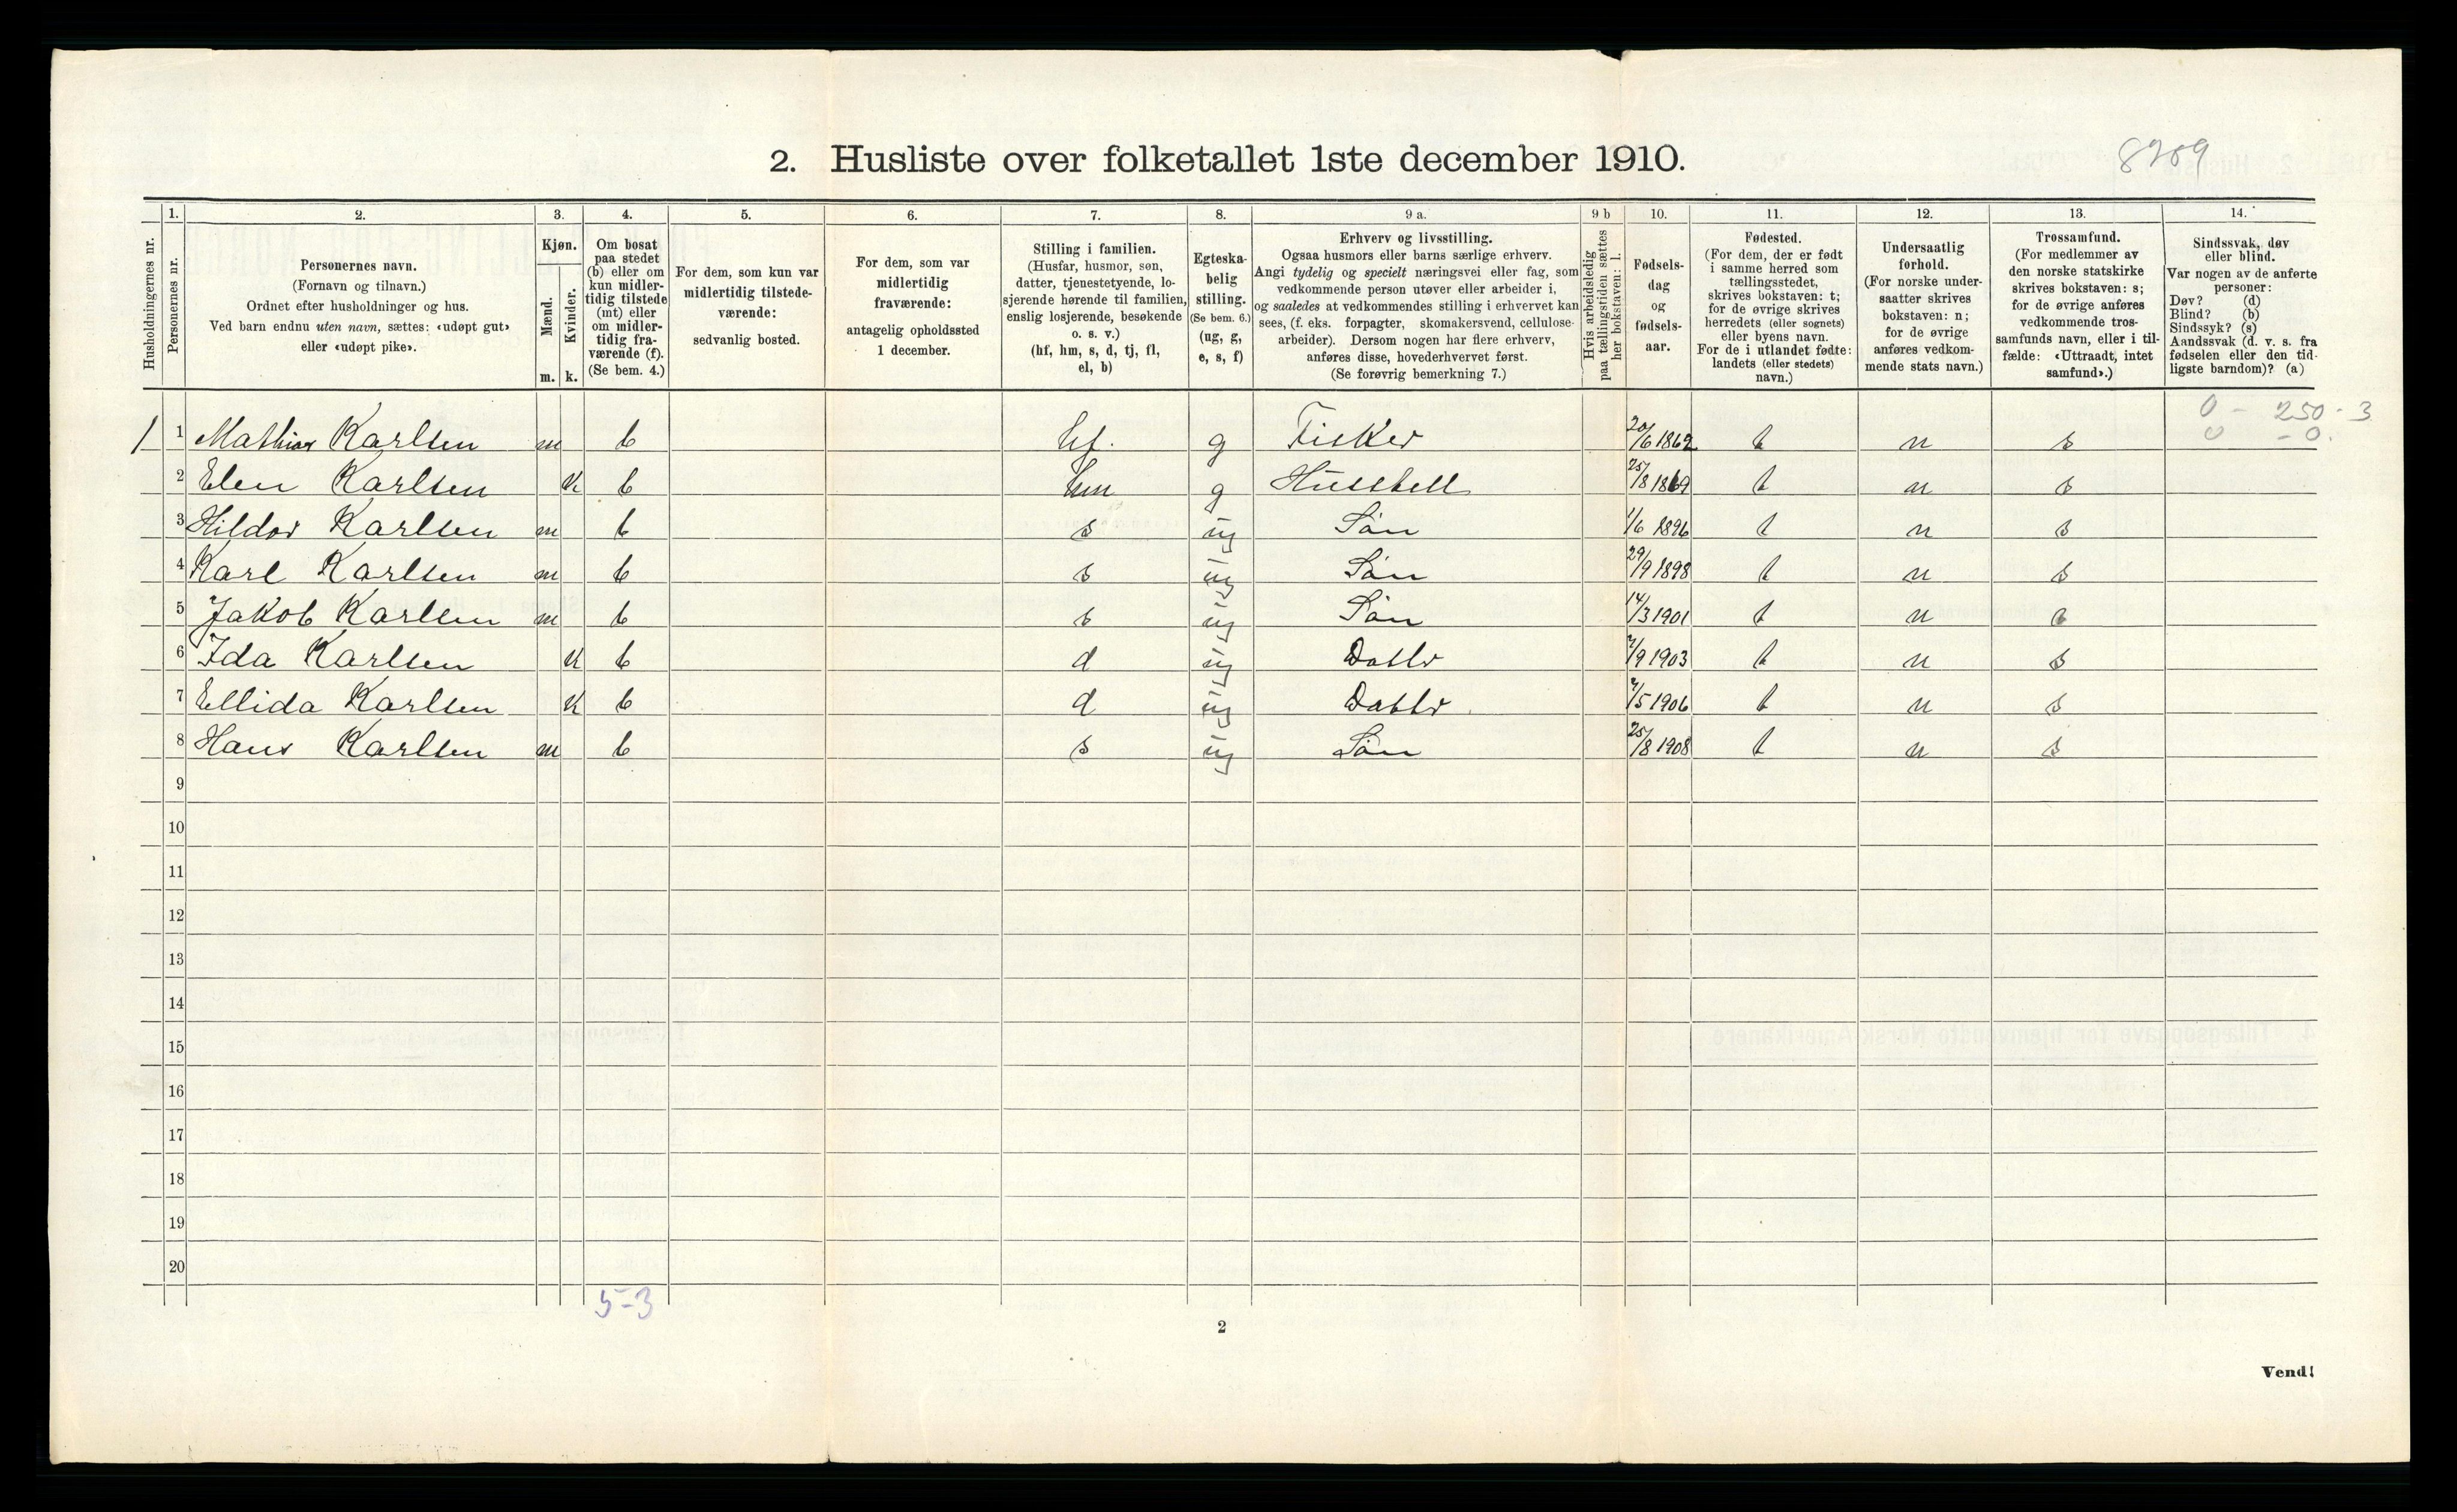 2. Husliste over folketallet 1ste december 1910.
8209
1. 2. 3. 4. 5. 6. 7. 8. 9 a. 9 b 10. 11. 12. 13. 14.
Husholdningernes nr.
Personernes nr.
Personernes navn.
(Fornavn og tilnavn.)
Ordnet efter husholdninger og hus.
Ved barn endnu uten navn, sættes: «udøpt gut»
eller «udøpt pike».
Kjøn.
Mænd.
Kvinder.
m. k.
Om bosat
paa stedet
(b) eller om
kun midler-
tidig tilstede
(mt) eller
om midler-
tidig fra-
værende (f).
(Se bem. 4.)
For dem, som kun var
midlertidig tilstede-
værende:
sedvanlig bosted.
For dem, som var
midlertidig
fraværende:
antagelig opholdssted
1 december.
Stilling i familien.
(Husfar, husmor, søn,
datter, tjenestetyende, lo-
sjerende hørende til familien,
enslig losjerende, besøkende
o. s. v.)
(hf, hm, s, d, tj, fl,
el, b)
Egteska-
belig
stilling.
(Se bem. 6.)
(ug, g,
e, s, f)
Erhverv og livsstilling.
Ogsaa husmors eller barns særlige erhverv.
Angi tydelig og specielt næringsvei eller fag, som
vedkommende person utøver eller arbeider i,
og saaledes at vedkommendes stilling i erhvervet kan
sees, (f. eks. forpagter, skomakersvend, cellulose-
arbeider). Dersom nogen har flere erhverv,
anføres disse, hovederhvervet først.
(Se forøvrig bemerkning 7.)
Hvis arbeidsledig
paa tællingstiden sættes
her bokstaven: l.
Fødsels-
dag
og
fødsels-
aar.
Fødested.
(For dem, der er født
i samme herred som
tællingsstedet,
skrives bokstaven: t;
for de øvrige skrives
herredets (eller sognets)
eller byens navn.
For de i utlandet fødte:
landets (eller stedets)
navn.)
Undersaatlig
forhold.
(For norske under-
saatter skrives
bokstaven: n;
for de øvrige
anføres vedkom-
mende stats navn.)
Trossamfund.
(For medlemmer av
den norske statskirke
skrives bokstaven: s;
for de øvrige anføres
vedkommende tros-
samfunds navn, eller i til-
fælde: «Uttraadt, intet
samfund».)
Sindssvak, døv
eller blind.
Var nogen av de anførte
personer:
Døv? (d)
Blind? (b)
Sindssyk? (s)
Aandssvak (d. v. s. fra
fødselen eller den tid-
ligste barndom)? (a)
0 - 250 - 3
0 - 0.
1 1 Mathias Karlsen m b hf. g Fisker 20/6 1862 t n s
2 Elen Karlsen k b hm g Husstell 25/8 1869 t n s
3 Hildor Karlsen m b s ug Søn 1/6 1896 t n s
4 Karl Karlsen m b s ug Søn 29/9 1898 t n s
5 Jakob Karlsen m b s ug Søn 14/3 1901 t n s
6 Ida Karlsen k b d ug Datter 7/9 1903 t n s
7 Ellida Karlsen k b d ug Datter 7/5 1906 t n s
8 Hans Karlsen m b s ug Søn 25/8 1908 t n s
9
10
11
12
13
14
15
16
17
18
19
20
5-3
2
Vend!